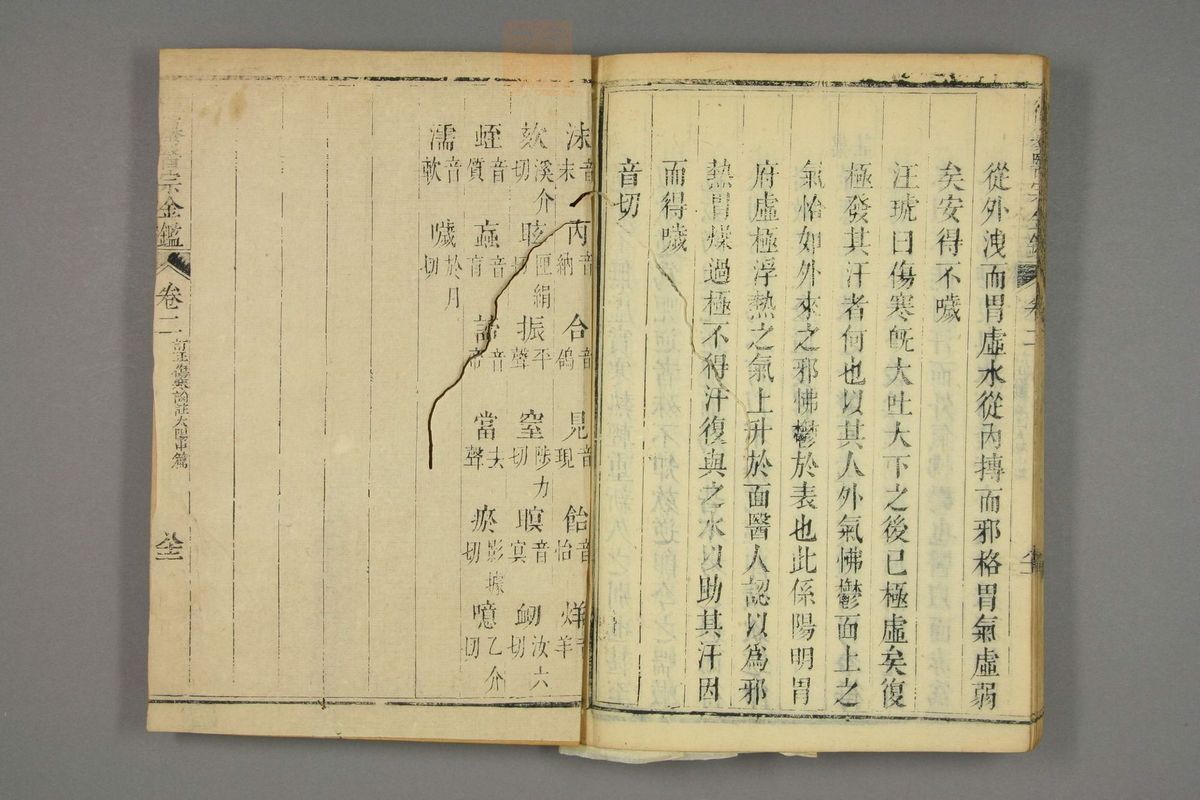 從外洩而胃虛水從內搏而邪格胃氣虛弱
矣安得不噦
汪琥曰傷寒旣大吐大下之後已極虛矣復
極發其汗者何也以其人外氣怫鬱面上之
氣恰如外來之邪怫鬱於表也此係陽明胃
府虛極浮熱之氣上升於面醫人認以為邪
熱胃燥過極不得汗復與之水以助其汗因
而得噦
音切
沫 音末 芮 音納 合 音鴿 見 音現 飴 音怡 烊 音羊
欬 溪介切 眩 匣絹切 振 平聲 窒 陟力切 瞑 音冥 衂 汝六切
蛭 音質 蝱 音盲 諦 音帝 當 去聲 瘀 影據切 噫 乙介切
濡 音軟 噦 於月切
宗金鑑 卷二 訂正傷寒論註太陽中篇